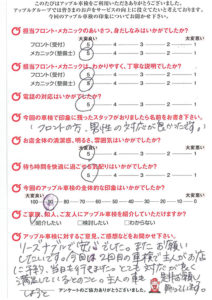 このたびはアップル車検をご利用いただきありがとうございました。
アップルグループでは皆さまのお声をサービスの向上に役立てたいと考えております。
今回のアップル車検の印象についてお聞かせ下さい。
担当フロント・メカニックのあいさつ、身だしなみはいかがでしたか?
大変良い 大変悪い
フロント(受付) 5 4 3 2 1
メカニック(整備士) 5 4 3 2 1
担当フロント・メカニックは、わかりやすく、丁寧な説明でしたか?
大変良い 大変悪い
フロント(受付) 5 4 3 2 1
メカニック(整備士) 5 4 3 2 1
電話の対応はいかがでしたか?
大変良い 大変悪い
5 4 3 2 1
今回の車検で印象に残ったスタッフがおりましたら名前をお書き下さい。
フロントの方、男性の対応が良かったです。
お店全体の清潔感、明るさ、雰囲気はいかがでしたか?
大変良い 大変悪い
5 4 3 2 1
待ち時間を快適に過ごせる気配りはいかがでしたか?
大変良い 大変悪い
5 4 3 2 1
今回のアップル車検の全体的な印象はいかがでしたか?
大変良い 大変悪い
100 90 80 70 60 50 40 30 20 10 0
ご家族、知人、ご友人にアップル車検を紹介していただけますか?
紹介したい 検討したい わからない
アップル車検に対するご意見、ご感想などをお聞かせ下さい。
リーズナブルで安心でした。またお願い
したいです。今回は2回目の車検で主人がお店
に
満足しているとのこと。の主人
アンケートのご協力ありがとうございました。